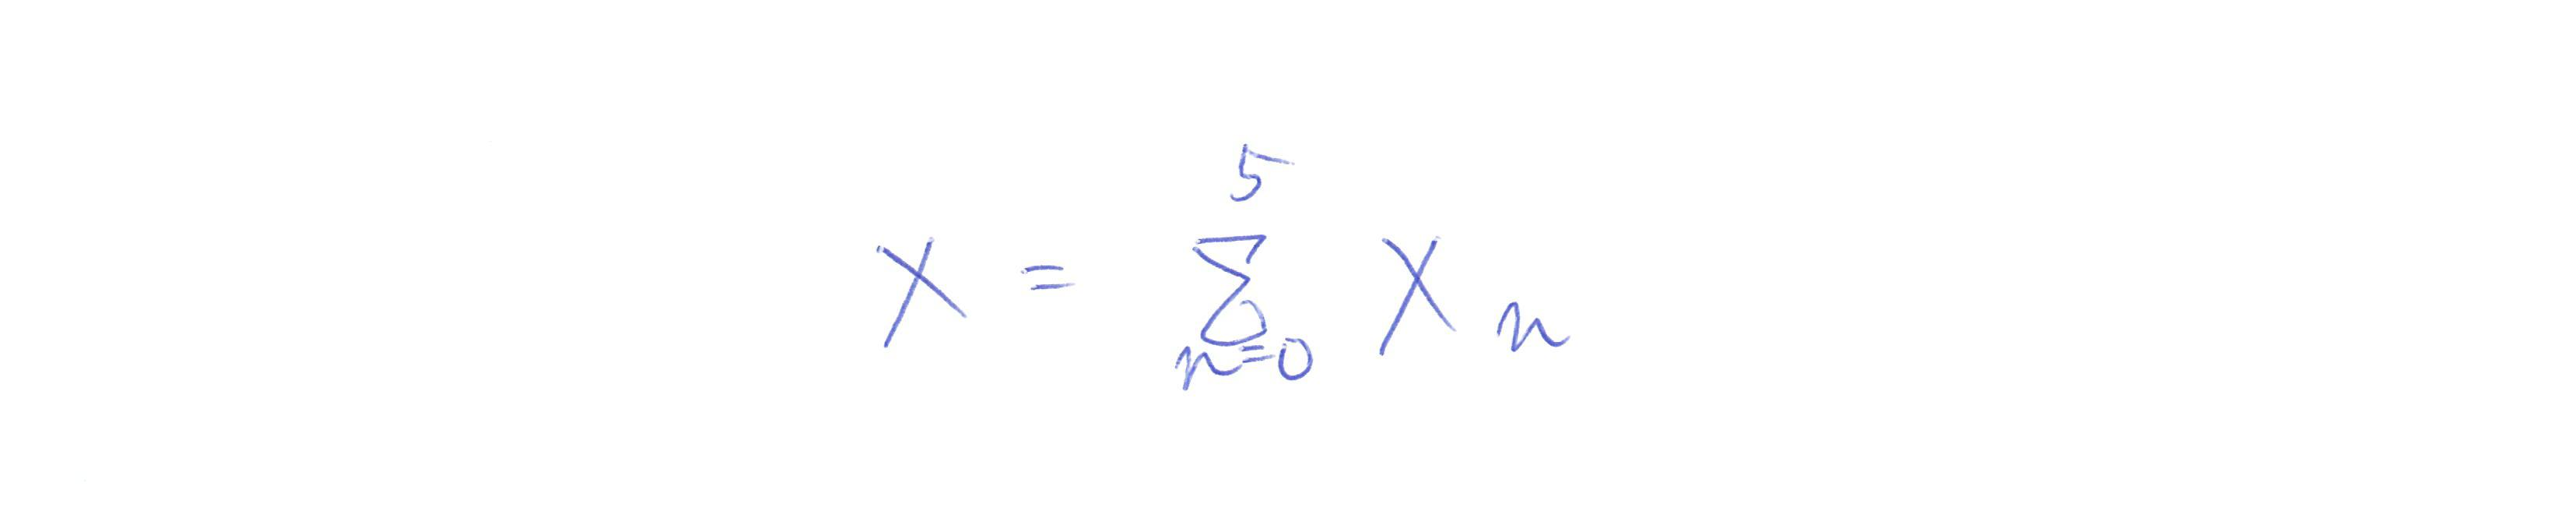 X = \sum_{n=0}^{5} X_n